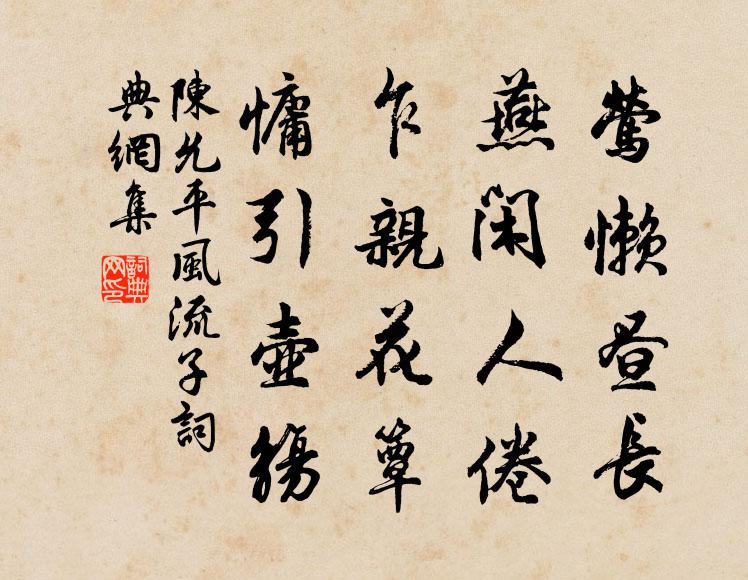 鶯懶昼長
燕閑人倦
乍親花簟
慵引壺觴
陳允平風流子詞
典網集
詞典網印